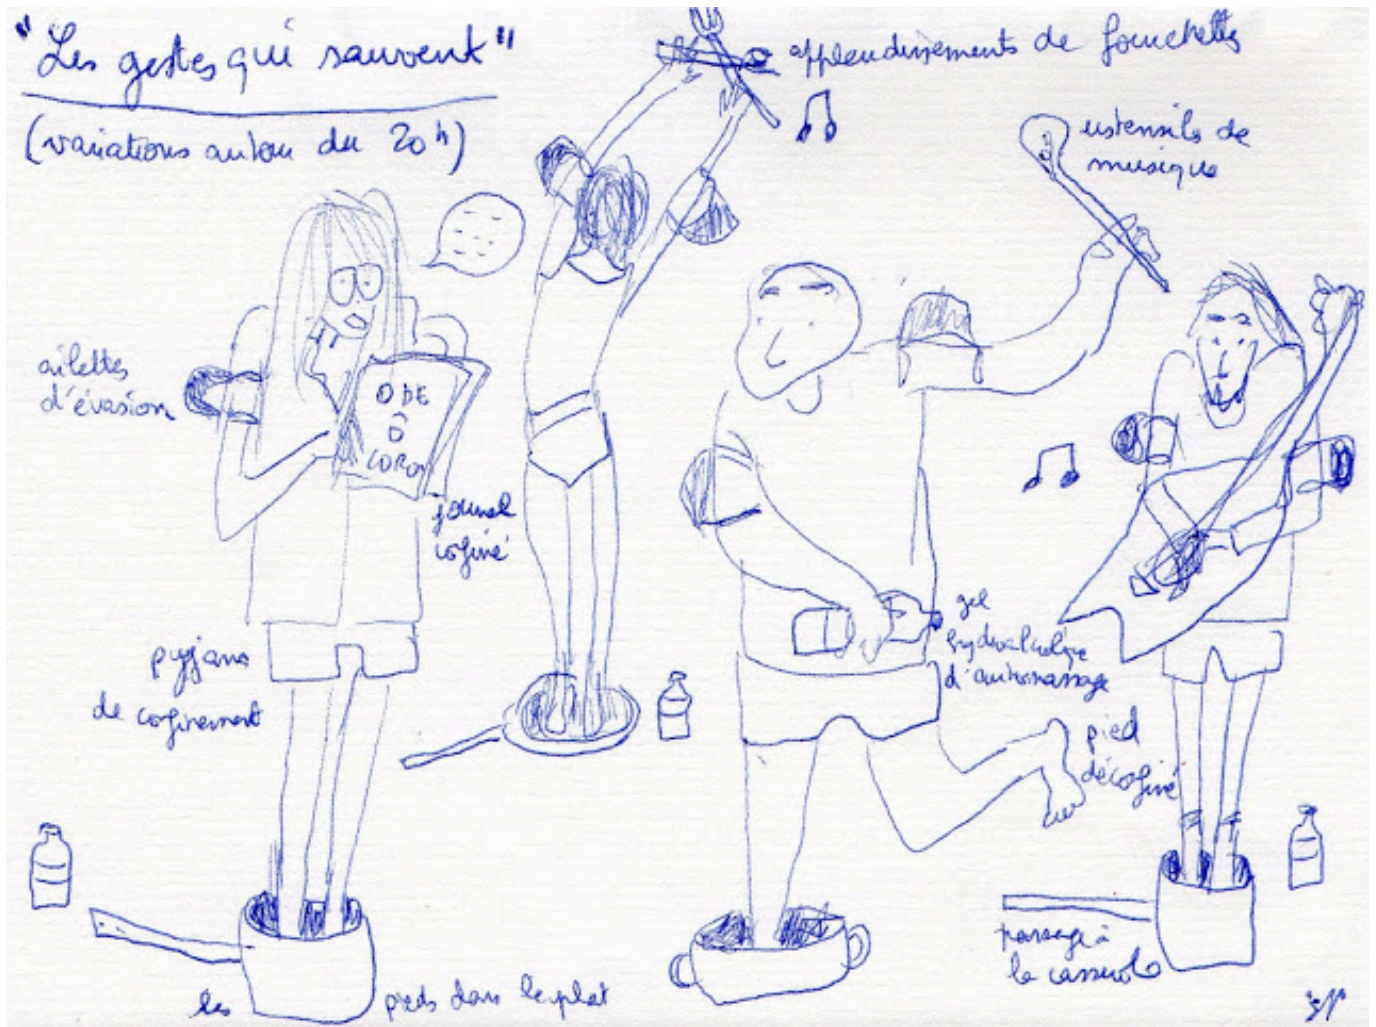 "Les gestes qui sauvent"
(variations autour du 20h)
applaudissements de fourchettes
ustensils de
musique
ailettes
d'évasion
ODE
Ô
CORO
journal
cofiné
pyjama
de cofinement
gel
hydroalcolique
d'automassage
pied
décofiné
passage à
la casserole
les pieds dans le plat